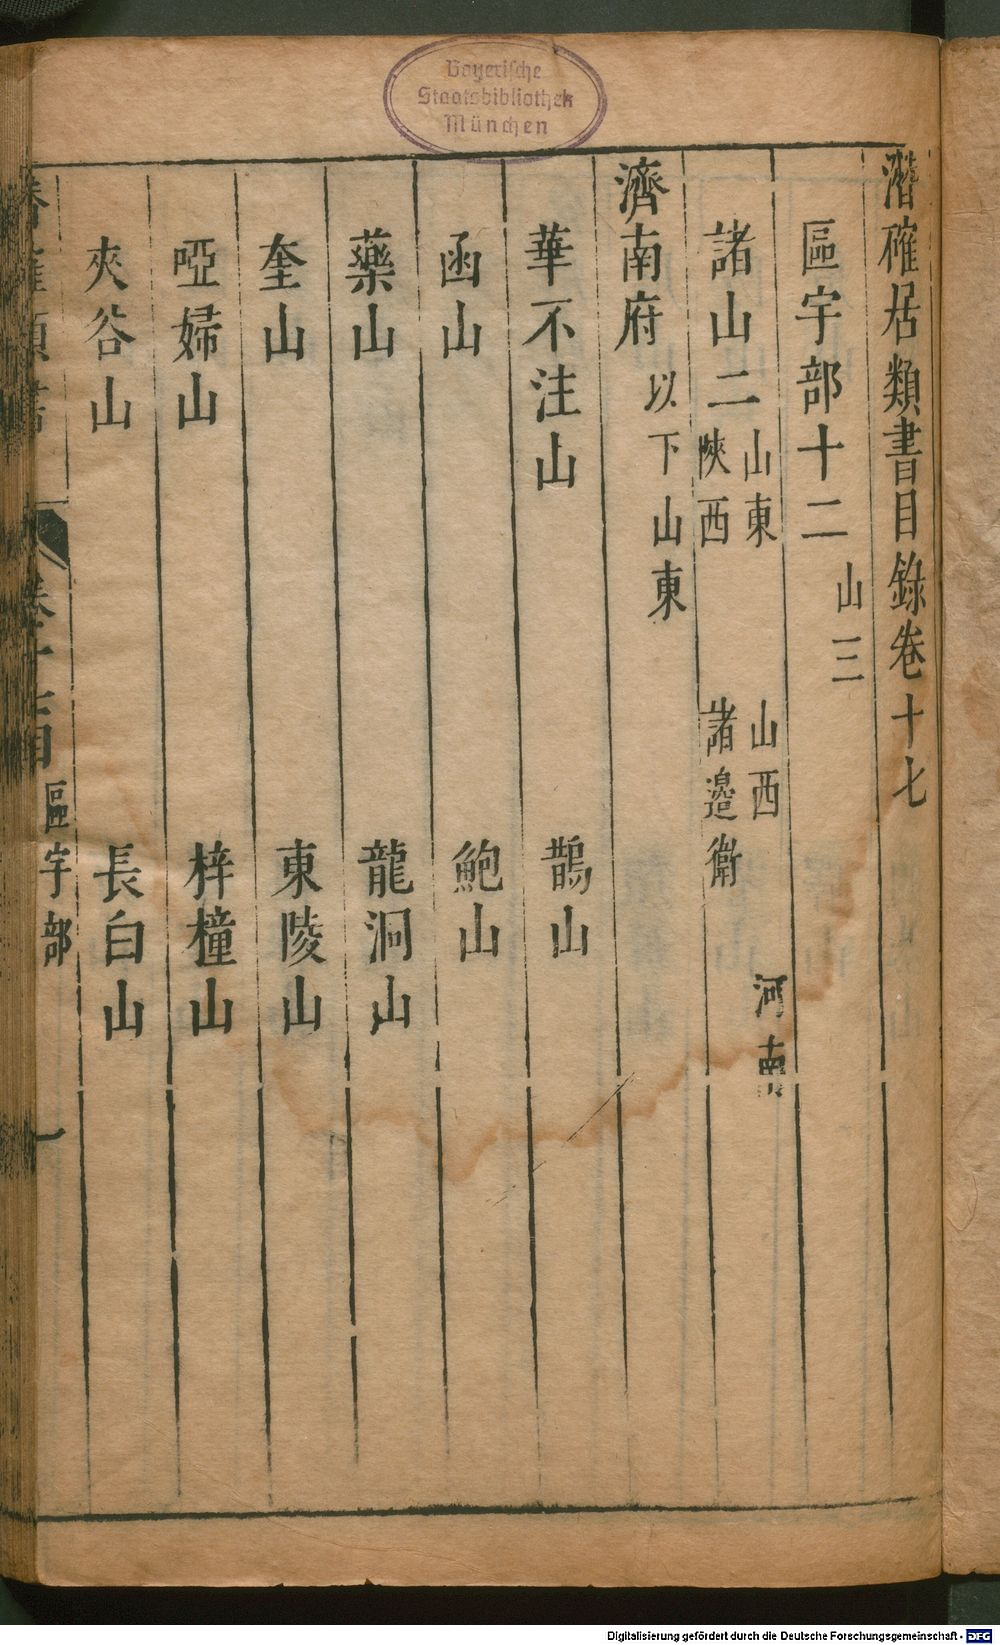 潛確居類書目錄卷十七
區宇部十二 山三
諸山二 山東 山西 河南
陝西 諸邊衛
濟南府 以下山東
華不注山 鵲山
函山 鮑山
藥山 龍洞山
奎山 東陵山
啞婦山 梓橦山
夾谷山 長白山
區宇部 一
Bayerische
Staatsbibliothek
München
Digitalisierung gefördert durch die Deutsche Forschungsgemeinschaft - DFG